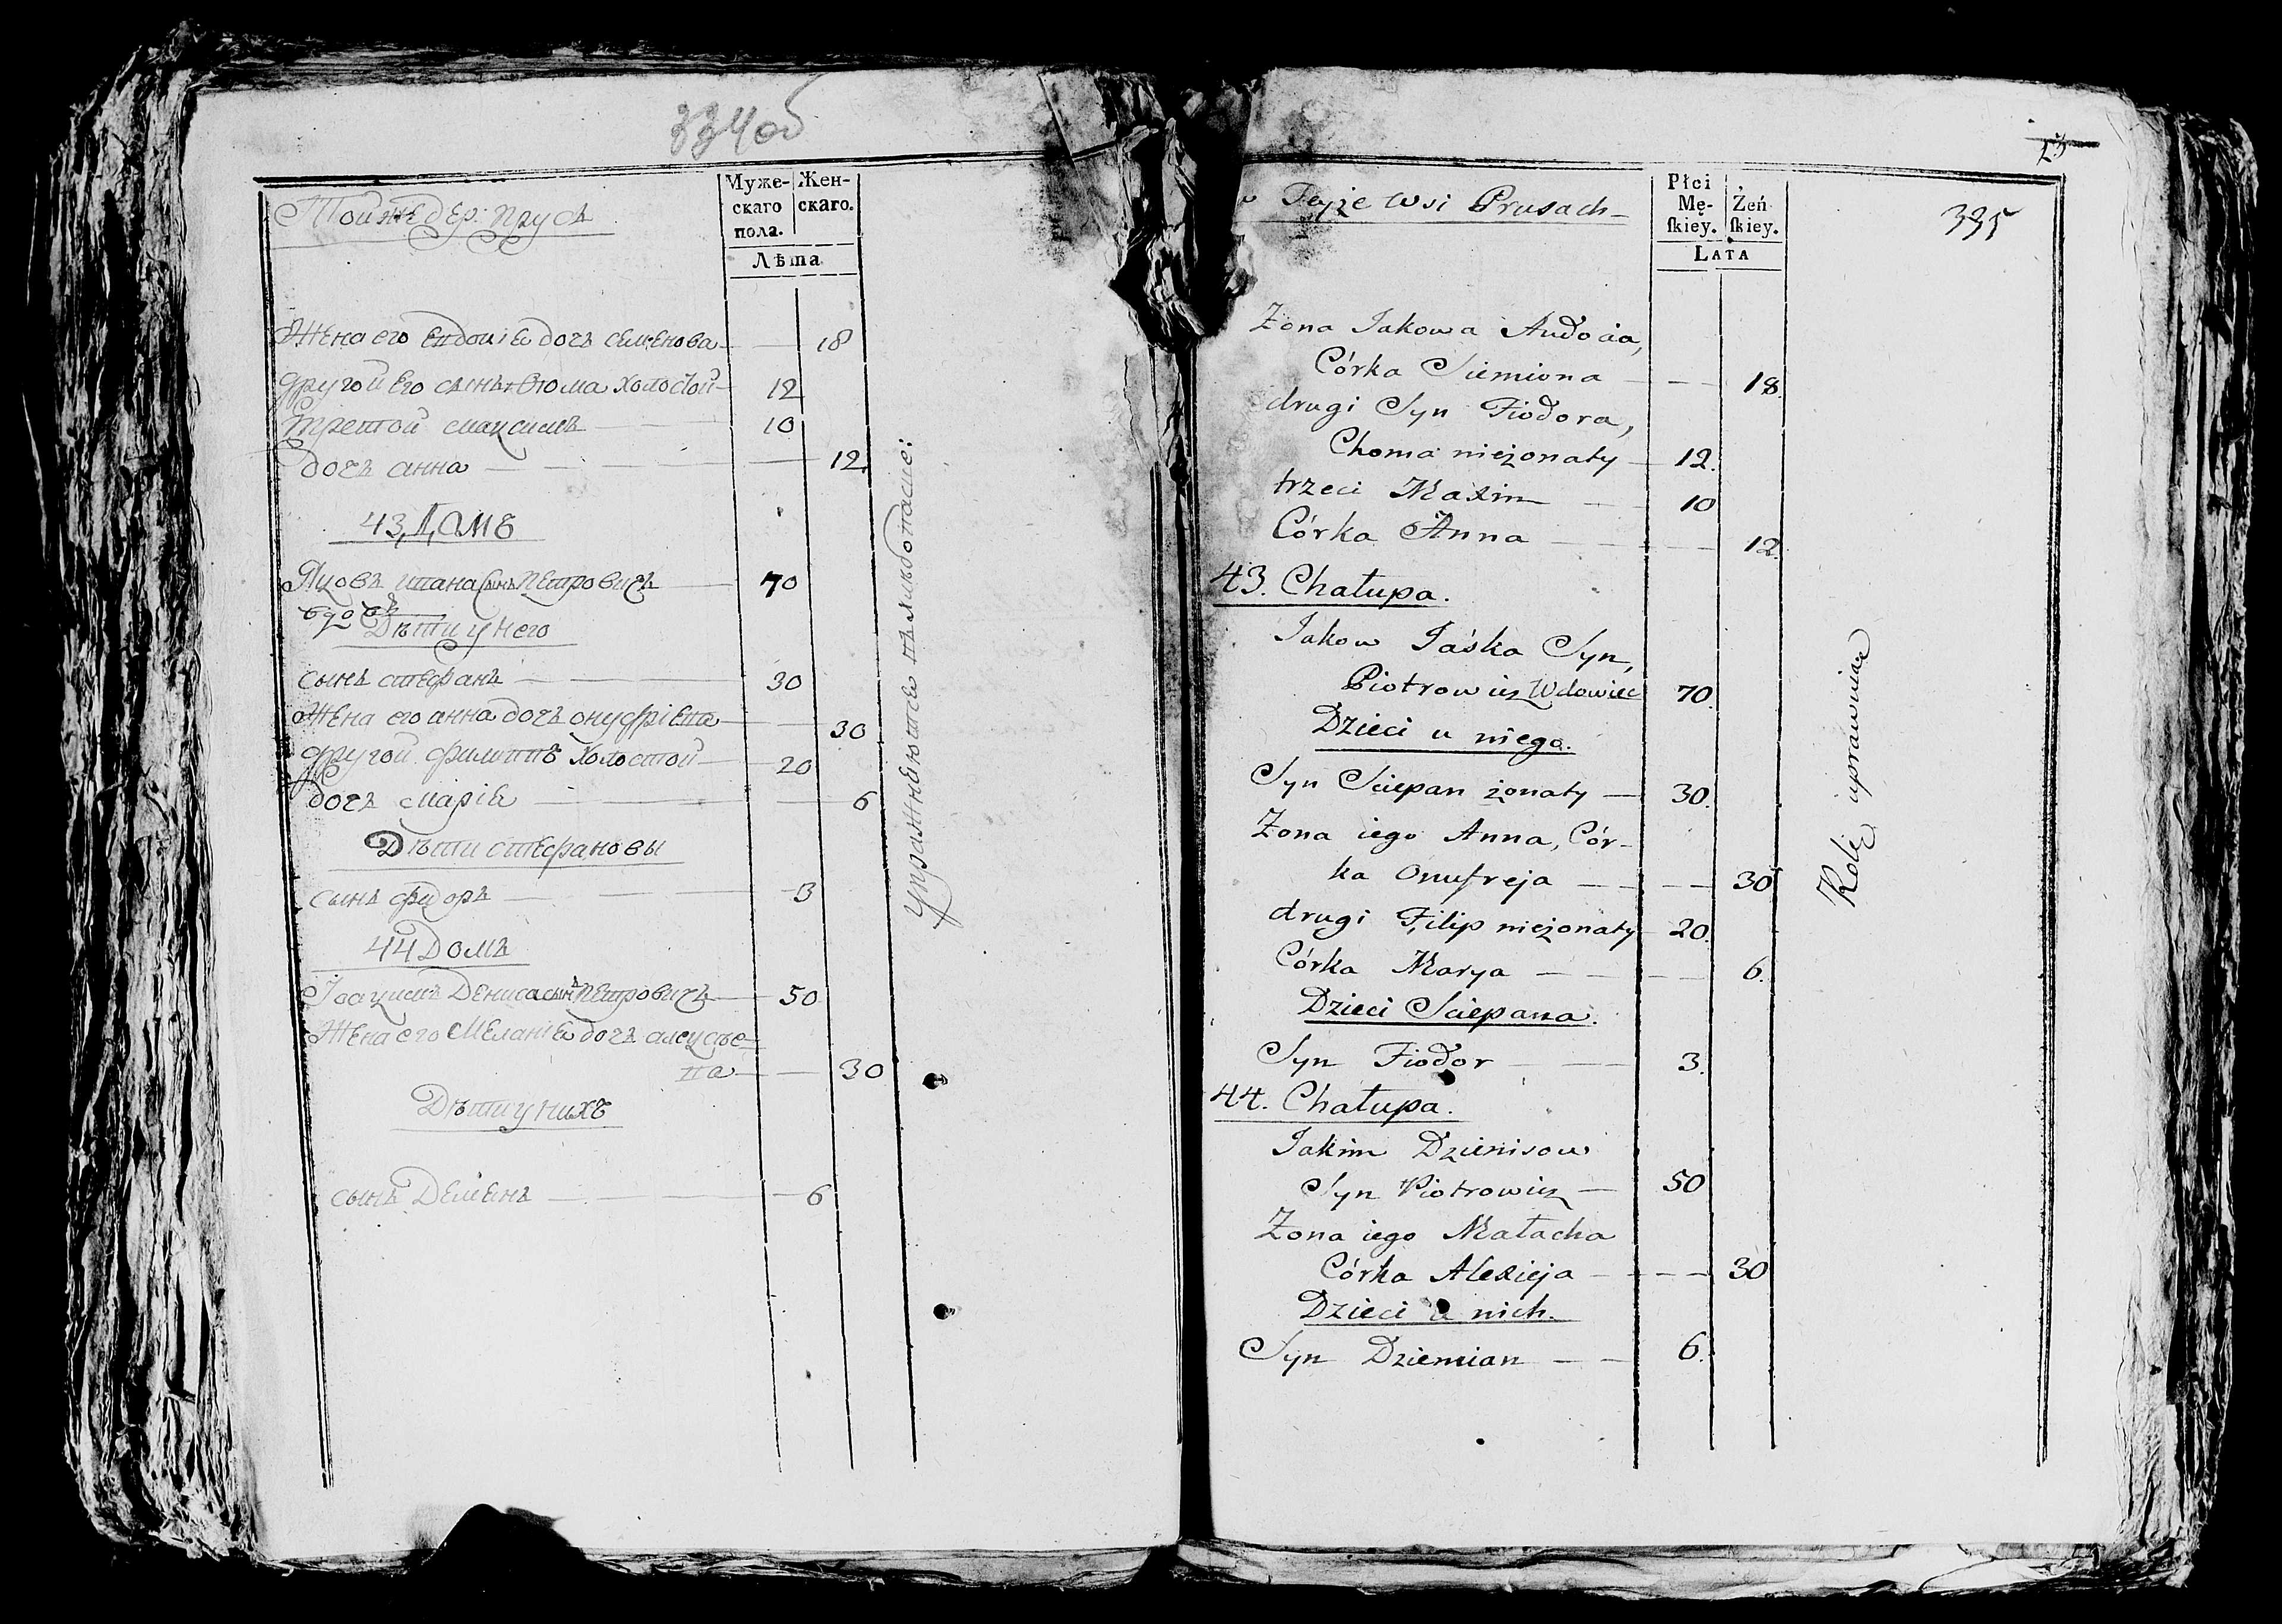 334об
Тойже дер: Прусъ
Муже-
скаго
пола.
Жен-
скаго.
Лѣта
Жена его Евдокіѧ дочь Семенова 18
Другой его сынъ Ѳома холостой 12
Третой Максимъ 10
дочь Анна 12
43, Домъ
Яковъ Ивана сынъ Петровичъ 70
вдовъ
Дѣти у него
сынъ Стефанъ 30
Жена его Анна дочь Онуфріева 30
Другой Филиппъ холостой 20
дочь Маріѧ 6
Дѣти Стефановы
сынъ Фидоръ 3
44 Домъ
Іоакимъ Дениса сынъ Петровичъ 50
Жена его Меланіѧ дочь Алексѣе=
ва 30
Дѣти у нихъ
сынъ Демѧнъ 6
Упражнѧютсѧ хлѣбопашес:
335
w Teyże Wsi Prusach
Płci
Mę-
ſkiey.
Żeń
ſkiey.
LATA
Żona Jakowa Audocia,
Córka Siemiona 18.
drugi Syn Fiodora,
Choma nieżonaty 12.
trzeci Maxim 10
Córka Anna 12.
43. Chałupa.
Jakow Jaśka Syn,
Piotrowicz Wdowiec 70.
Dzieci u niego.
Syn Sciepan żonaty 30.
Żona iego Anna, Cór-
ka Onufreja 30
drugi Filip nieżonaty 20.
Córka Marya 6.
Dzieci Sciepana.
Syn Fiodor 3.
44. Chałupa.
Jakim Dzienisow
Syn Piotrowicz 50
Żona iego Małacha
Córka Alexieja 30
Dzieci u nich.
Syn Dziemian 6.
Rolę uprawnia